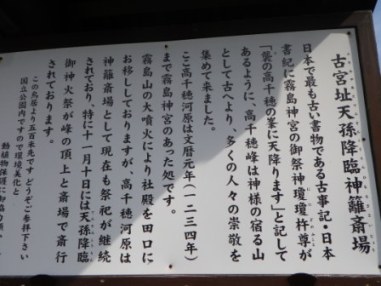 古宮址天孫降臨神籬斎場
日本で最も古い書物である古事記・日本
書紀に霧島神宮の御祭神瓊瓊杵尊が
「襲の高千穂の峯に天降ります」と記して
あるように、高千穂峰は神様の宿る山
として古へより、多くの人々の崇敬を
集めて来ました。
ここ高千穂河原は文暦元年（一二三四年）
まで霧島神宮のあった処です。
霧島山の大噴火により社殿を田口に
お移ししておりますが、高千穂河原は
神籬斎場として現在も祭祀が継続
されており、特に十一月十日には天孫降臨
御神火祭が峰の頂上と斎場で斎行
されております。
この鳥居より五百米先です どうぞご参拝下さい
国立公園内ですので環境美化と
動植物保護に御協力